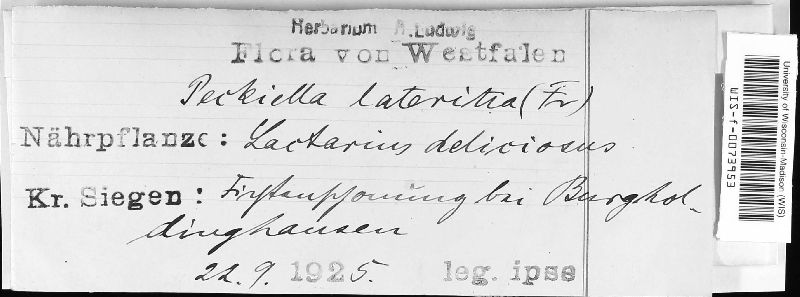 Herbarium A.Ludwig
Flora von Westfalen
Peckiella lateritia (Fr)
Nährpflanze: Lactarius deliciosus
Kr. Siegen: Fichtenschonung bei Burghol-
dinghausen
22.9. 1925. leg. ipse
University of Wisconsin-Madison (WIS)
WIS-f-0073953